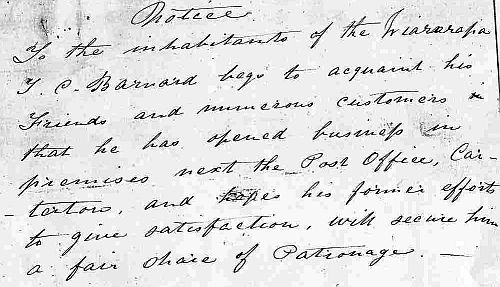 Notice
To the inhabitants of the Wararapa
T C. Barnard begs to acquaint his
Friends and numerous customers
that he has opened business in
premises next the Post Office, Car-
terton, and hopes his former efforts
to give satisfaction, will secure him
a fair share of Patronage. —